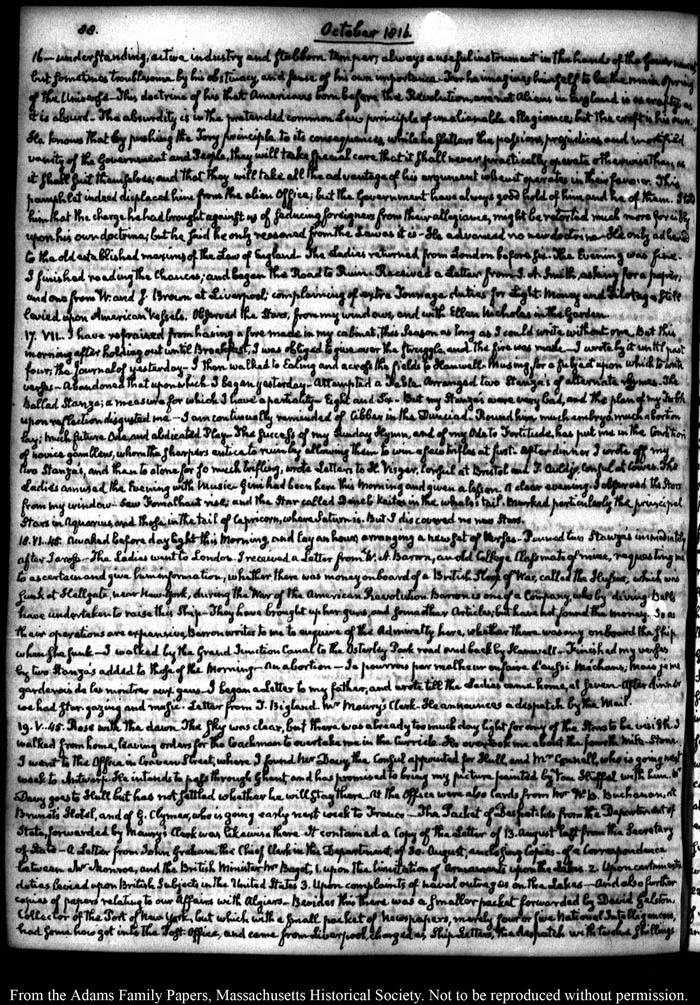 88. October 1816.
16— understanding, active industry and stubborn temper; always a useful instrument in the hands of the Government
but sometimes troublesome by his obstinacy, and sense of his own importance. For he imagines himself to be the main Spring
of the Universe. This doctrine of his that Americans born before the Revolution, are not Aliens in England is as crafty as
it is absurd. The absurdity is in the pretended common Law principle of unalienable allegiance; but the craft is his own.
He knows that by pushing the Tory principle to its consequences, while he flatters the passions, prejudices, and mortified
vanity of the Government and People, they will take special care that it shall never practically operate otherwise than as
it shall suit themselves; and that they will take all the advantage of his argument when it operates in their favour. This
pamphlet indeed displaced him from the alien Office; but the Government have always good hold of him and he of them. I told
him that the charge he had brought against us of seducing foreigners from their allegiance, might be retorted much more forcibly
upon his own doctrine; but he said he only reasoned from the Law as it is. He advanced no new doctrine. He only adhered
to the old established maxims of the Law of England. The Ladies returned from London before six. The Evening was fine.
I finished reading the Chances; and began the Road to Ruin. Received a Letter from J. A. Smith, asking for a paper,
and one from W. and J. Brown at Liverpool; complaining of extra Tonnage duties for Light Money and Pilotage still
levied upon American Vessels. Observed the Stars, from my windows, and with Ellen Nicholas in the Garden.
17. VII. I have refrained from having a fire made in my cabinet, this Season as long as I could write without one. But this
morning after holding out until Breakfast, I was obliged to give over the struggle, and the fire was made. I wrote by it until past
four; the Journal of yesterday. I then walked to Ealing and across the fields to Hanwell. Musing for a subject upon which to write
verses. Abandoned that upon which I began yesterday. Attempted a Fable. Arranged two Stanza's of alternate rhymes. The
Ballad Stanza; a measure for which I have a partiality. Eight and Six. But my Stanza's were very bad, and the plan of my Fable
upon reflection disgusted me. I am continually reminded of Cibber in the Dunciad. Round him much embryo, much abortion
lay; Much future Ode, and abdicated Play. The success of my Sunday Hymn, and of my Ode to Fortitude, has put me in the Condition
of novice gamblers, whom the sharpers entice to ruin by allowing them to win a few trifles at first. After dinner I wrote off my
two Stanza's, and then to atone for so much trifling, wrote Letters to H. Visger, Consul at Bristol and T. Auldjo, Consul at Cowes. The
Ladies amused the Evening with Music. Gini had been here this Morning and given a lesson. A clear evening. I observed the Stars
from my window. Saw Fomalhaut rise; and the Star called Deneb Kaitos in the whale's tail. Marked particularly the principal
Stars in Aquarius, and those in the tail of Capricorn, where Saturn is. But I discovered no new Stars.
18. VI. 45. Awaked before day light this Morning, and lay an hour; arranging a new set of Verses. Penned two Stanzas immediately
after I arose. The Ladies went to London. I received a Letter from W. A. Barron, an old College Classmate of mine, requesting me
to ascertain and give him information, whether there was money on board of a British Sloop of War, called the Hussar, which was
sunk at Hellgate, near New-York, during the War of the American Revolution. Barron is one of a Company, who by diving Bells
have undertaken to raise this Ship. They have brought up her guns, and some other Articles; but have not found the money. So as
their operations are expensive, Barron writes to me to enquire of the Admiralty here, whether there was any on board the Ship
when she sunk. I walked by the Grand Junction Canal to the Osterley Park road and back by Hanwell. Finished my verses
by two Stanza's added to those of the Morning. An abortion. Je pourrois par malheur en faire d'aussi méchans; Mais je me
garderois de les montrer aux gens. I began a Letter to my father, and wrote till the Ladies came home, at seven. After dinner
we had star-gazing and music. Letter from J. Bigland Mr Maury's Clerk. He announces a despatch by the Mail.
19. V. 45. Rose with the dawn. The Sky was clear, but there was already too much day light for any of the Stars to be visible. I
walked from home, leaving orders for the Coachman to overtake me in the Curricle. He overtook me about the fourth Mile-Stone.
I went to the Office in Craven Street, where I found Mr Davy, the Consul appointed for Hull, and Mr Connell, who is going next
week to Antwerp. He intends to pass through Ghent and has promised to bring my picture painted by Van Huffel with him. Mr
Davy goes to Hull but has not settled whether he will stay there. At the Office were also Cards from Mr W. B. Buchanan, at
Brunet's Hotel, and of G. Clymer, who is going early next week to France. The Packet of Despatches from the Department of
State, forwarded by Maury's Clerk was likewise there. It contained a Copy of the Letter of 13. August last from the Secretary
of State. A Letter from John Graham, the Chief Clerk in the Department, of 30. August, enclosing copies of a Correspondence
between Mr Monroe, and the British Minister Mr Bagot, 1. upon the limitation of Armaments upon the Lakes. 2. Upon certain
duties levied upon British Subjects in the United States 3. Upon complaints of naval outrages on the Lakes. And also further
copies of papers relating to our Affairs with Algiers. Besides this there was a smaller packet forwarded by David Gelston,
Collector of the Port of New York, but which with a small packet of Newspapers, merely four or five National Intelligencers,
had some how got into the Post-Office, and came from Liverpool, charged as Ship Letters, the despatch with twelve shillings
From the Adams Family Papers, Massachusetts Historical Society. Not to be reproduced without permission